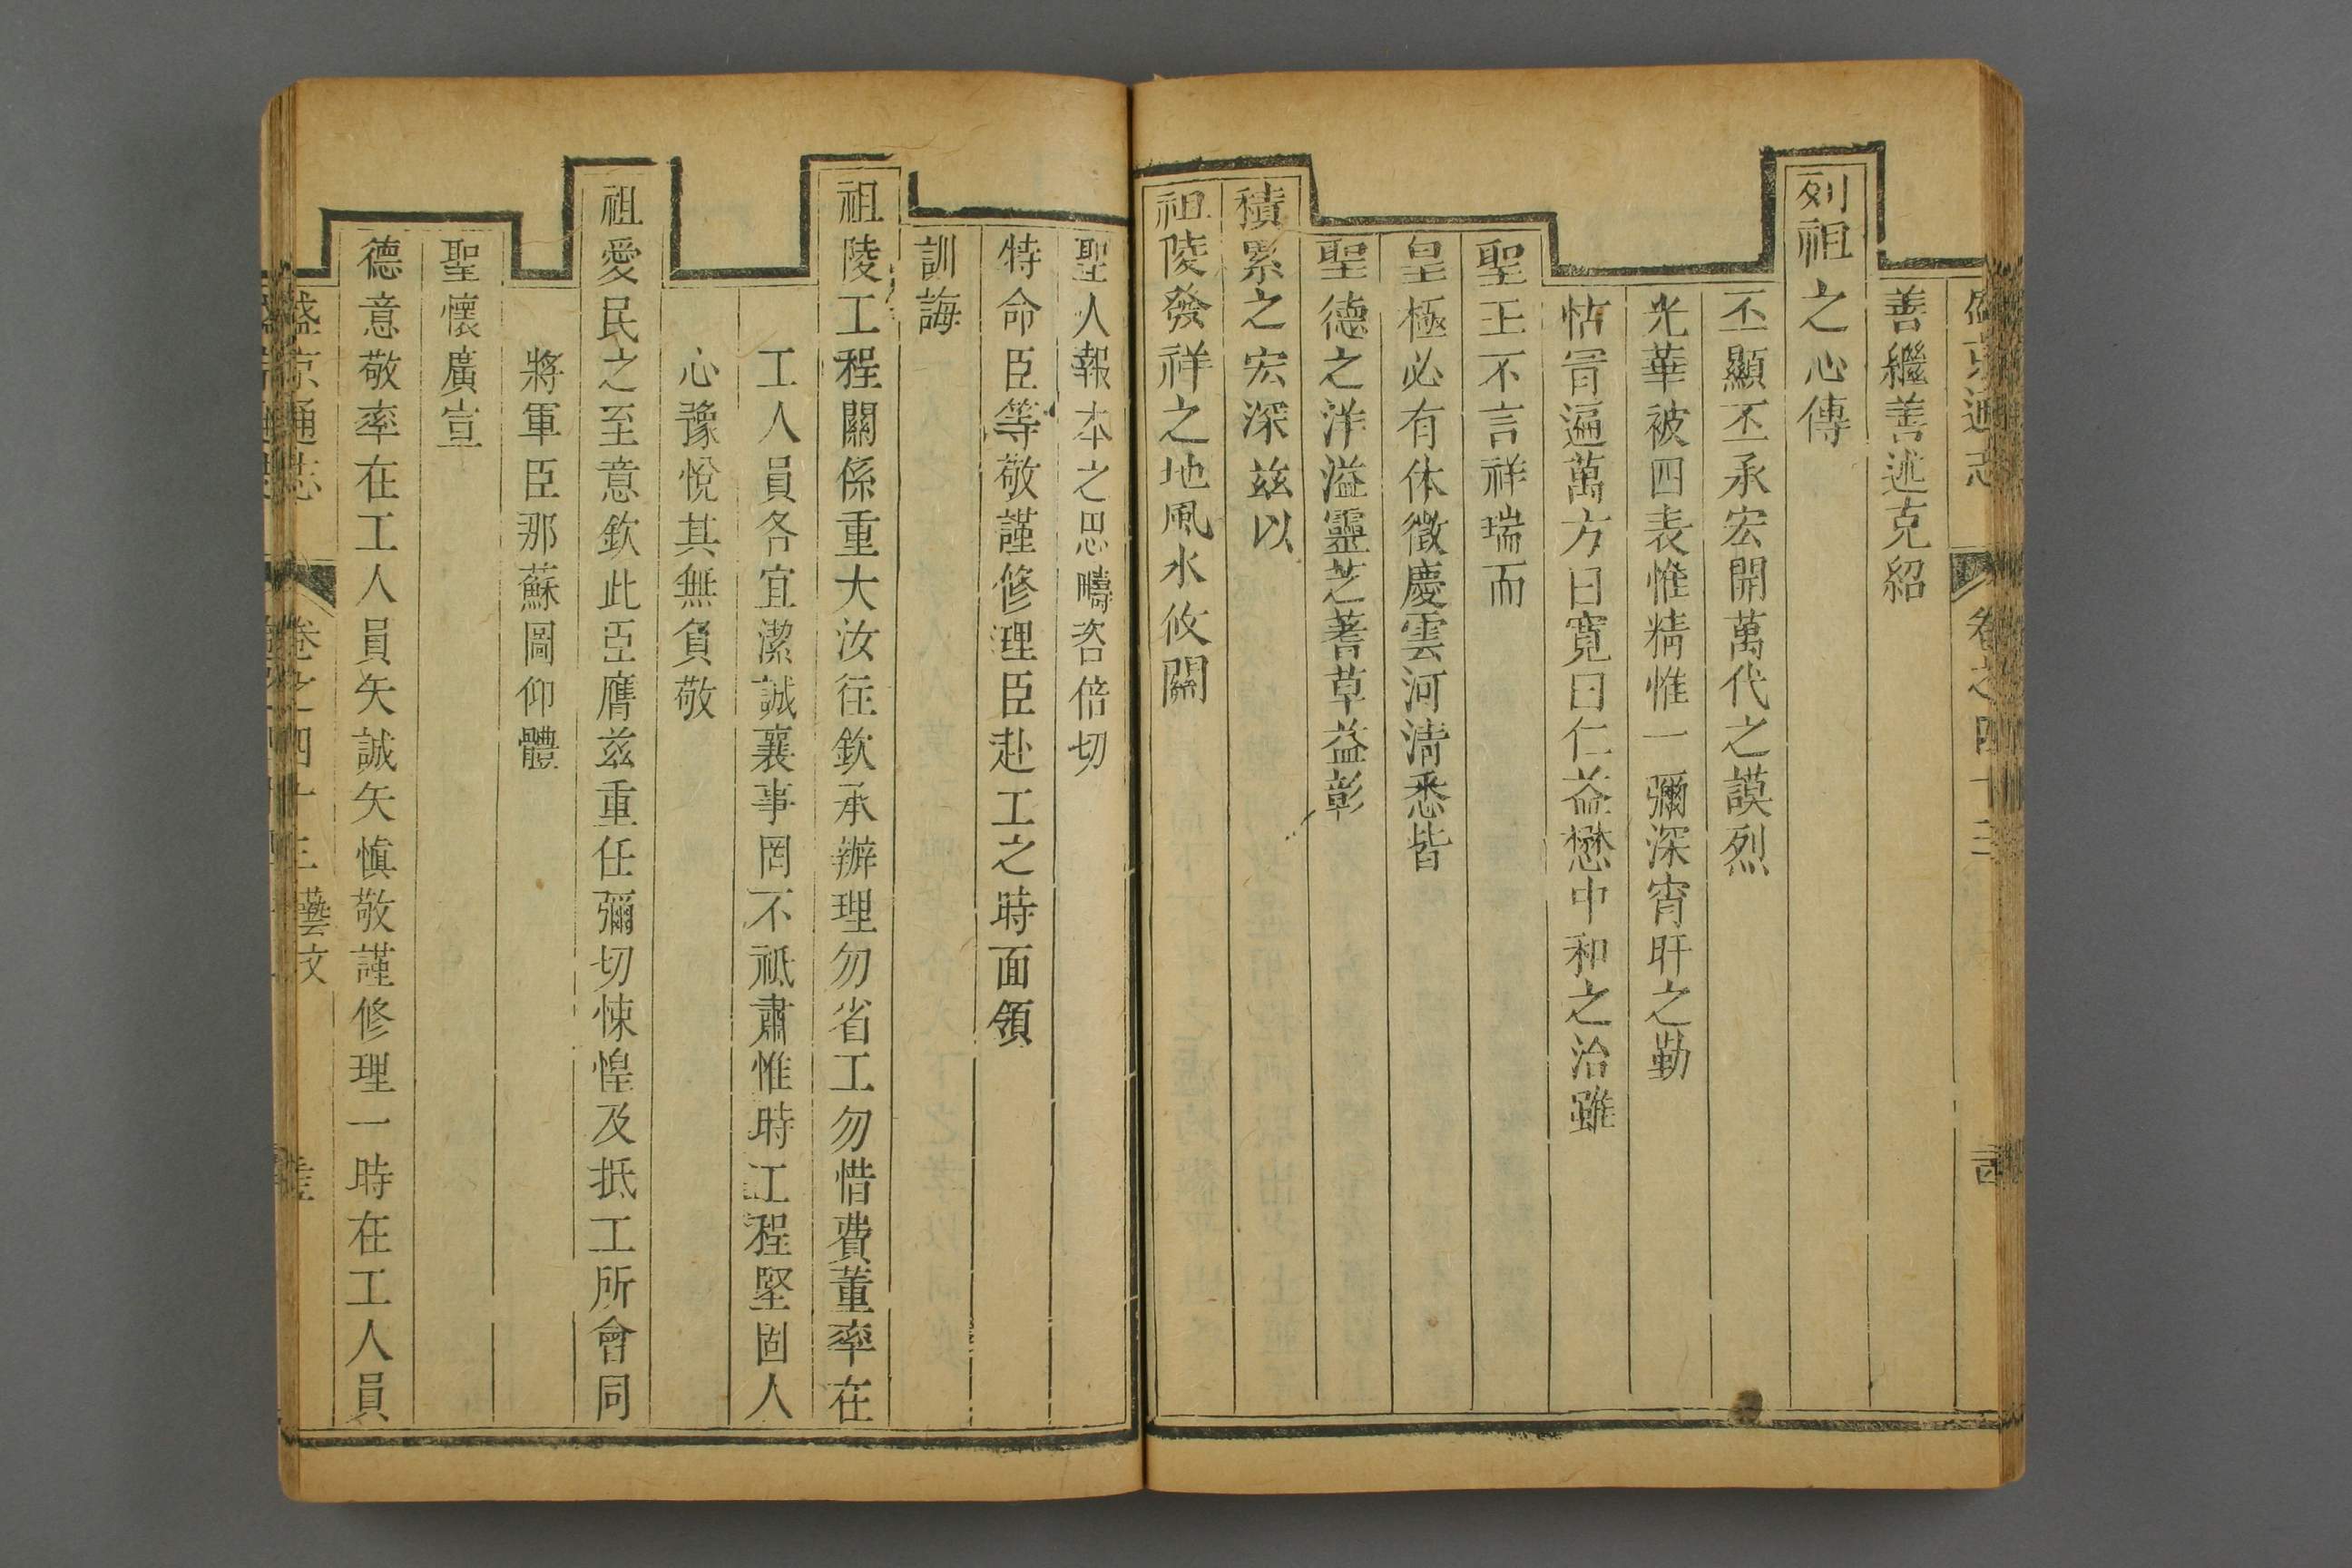 盛京通志 卷之四十三
善繼善述克紹
列祖之心傳
丕顯丕承宏開萬代之謨烈
光華被四表惟精惟一彌深宵旰之勤
怙冐遍萬方曰寛曰仁益懋中和之治雖
聖王不言祥瑞而
皇極必有休徵慶雲河清悉皆
聖德之洋溢靈芝蓍草益彰
積累之宏深兹以
祖陵發祥之地風水攸關
聖人報本之思疇咨倍切
特命臣等敬謹修理臣赴工之時面領
訓誨
祖陵工程關係重大汝往欽承辦理勿省工勿惜費董率在
工人員各宜潔誠襄事罔不祗肅惟時工程堅固人
心豫悅其無負敬
祖愛民之至意欽此臣膺兹重任彌切悚惶及抵工所會同
將軍臣那蘇圖仰體
聖懷廣宣
德意敬率在工人員矢誠矢慎敬謹修理一時在工人員
盛京通志 卷之四十三 藝文